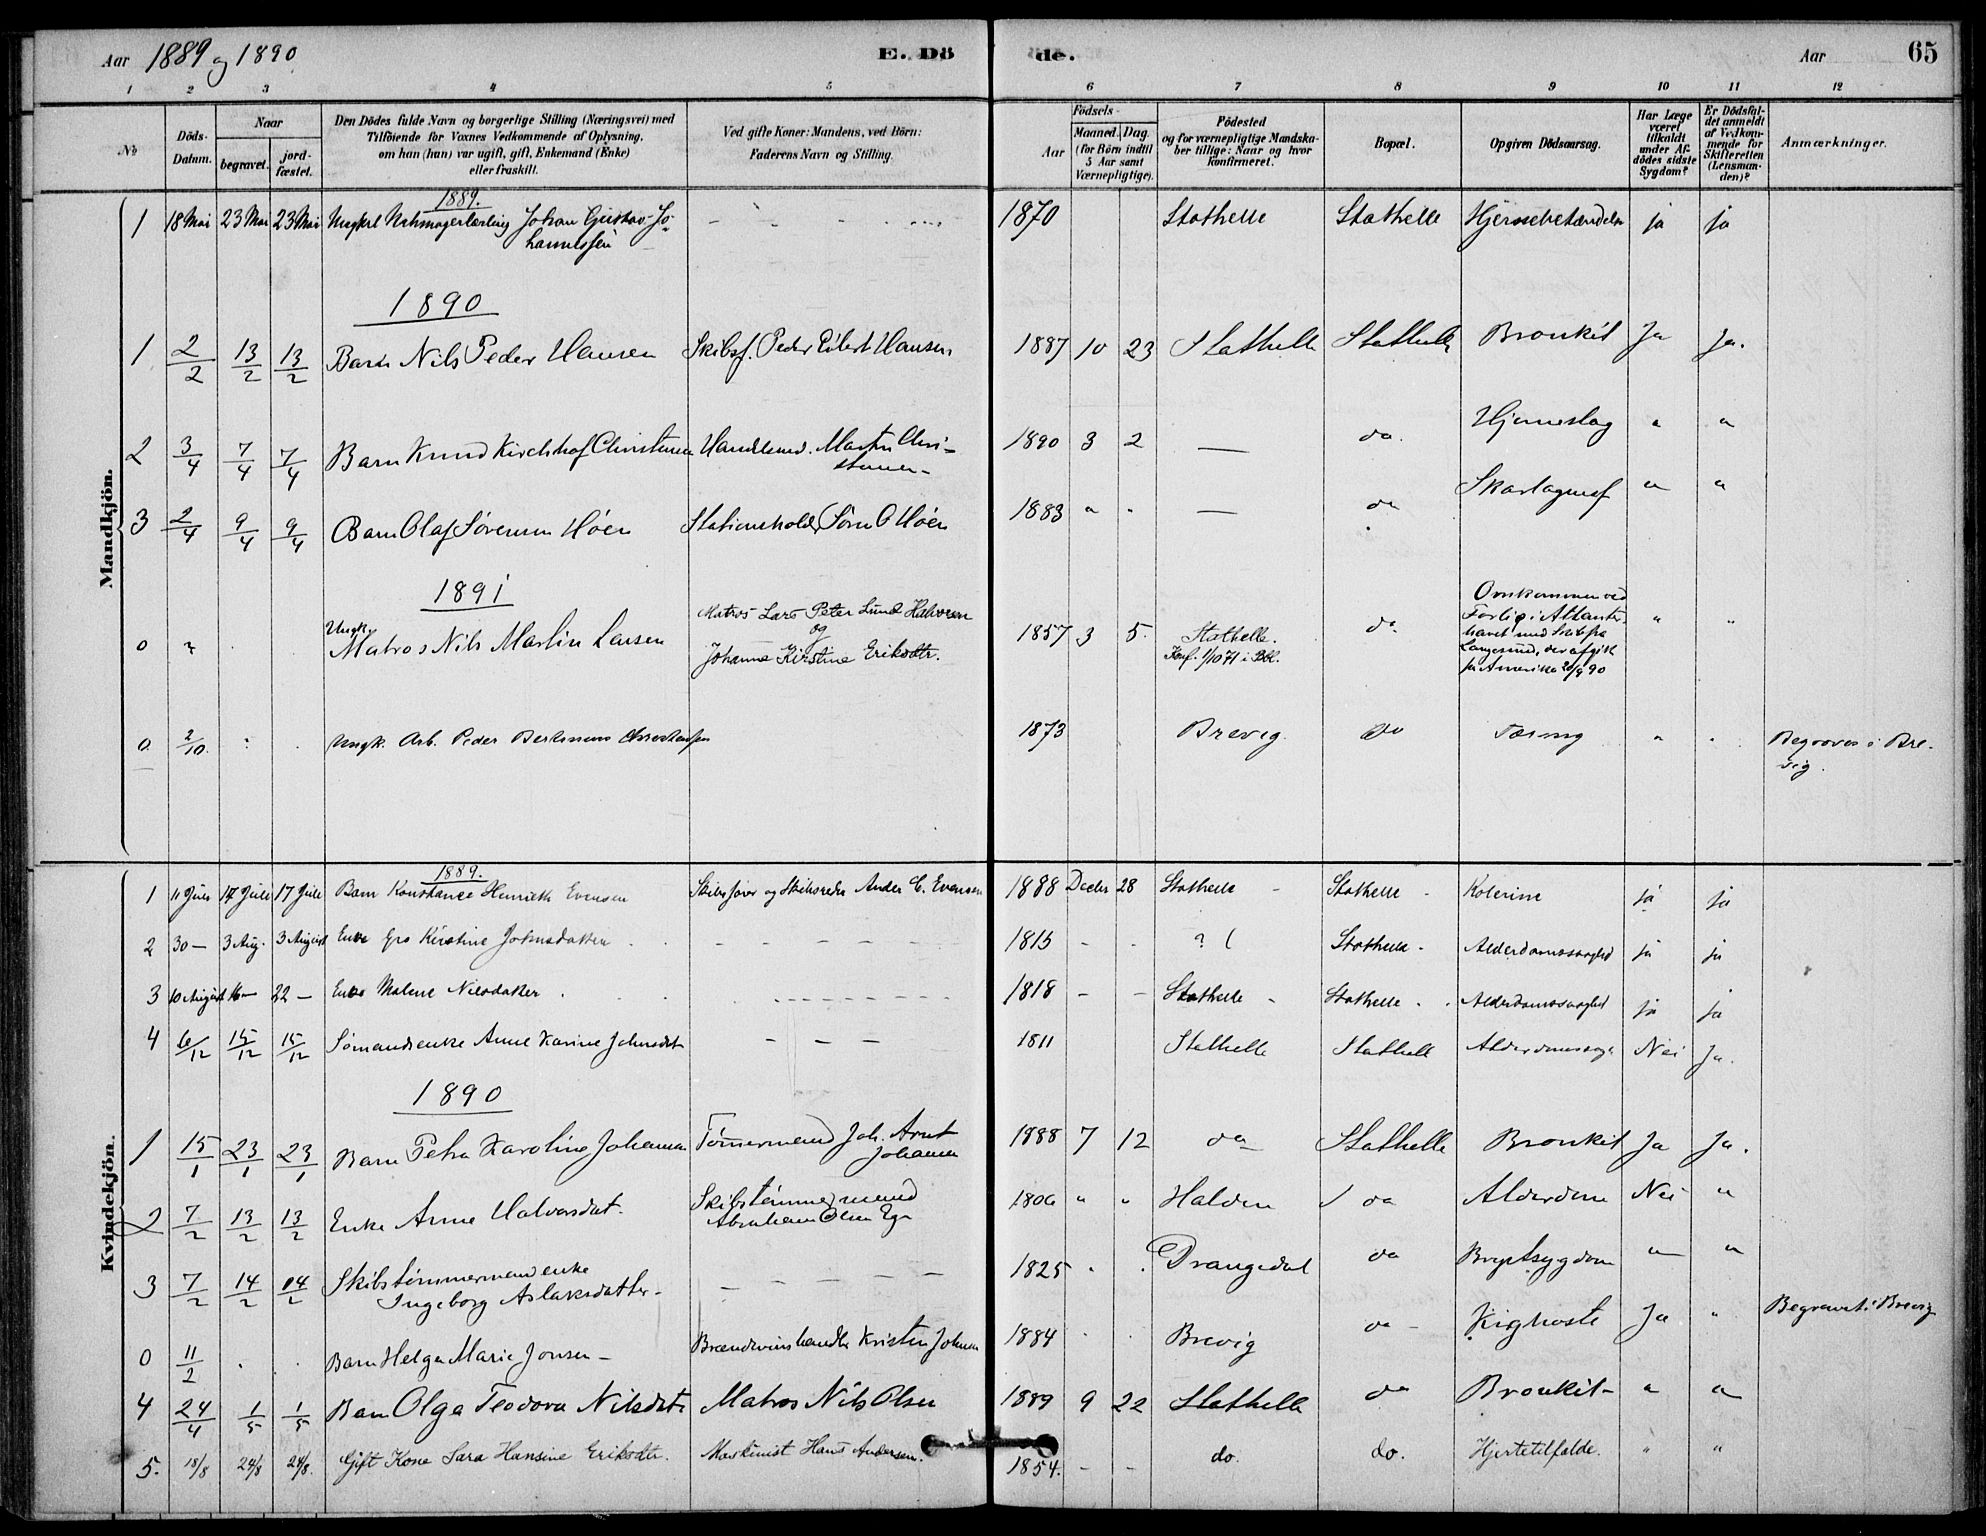 Aar 1889 og 1890 E. Dö de. Aar 65
1 2 3 4 5 6 7 8 9 10 11 12
No
Döds-Datum.
Naar
begravet. jordfæstet.
Den Dödes fulde Navn og borgerlige Stilling (Næringsvei) med
Tilföiende for Voxnes Vedkommende af Oplysning,
om han (hun) var ugift, gift, Enkemand (Enke)
eller fraskilt.
Ved gifte Koner: Mandens, ved Börn:
Faderens Navn og Stilling.
Födsels-
Aar
Maaned. Dag.
(for Börn indtil
5 Aar samt
Værnepligtige).
Födested
og for værnepligtige Mandskaber tillige: Naar og hvor
konfirmeret.
Bopæl.
Opgiven Dödsaarsag.
Har Læge
været
tilkaldt
under Afdödes sidste
Sygdom?
Er Dödsfaldet anmeldt
af Vedkommende for
Skifteretten
(Lensmanden)?
Anmærkninger.
Mandkjön.
1889.
1 18 Mai 23 Mai 23 Mai Johan Gustav Johannessen 1870 Stathelle Stathelle Hjernebetændelse ja ja
1890
1 2/2 13/2 13/2 Barn Nils Peder Hansen Skibsf. Peder Eilert Hansen 1887 10 23 Stathelle Stathelle Bronkit Ja Ja.
2 3/4 7/4 7/4 Barn Knud Kirchhof Christensen Handlsmd. Martin Christensen 1890 3 2 — do. Hjerneslag " "
3 2/4 9/4 9/4 Barn Olaf Sørensen Høen Stationsholder Søren O Høen 1883 " " — do Skarlagensf " "
1891
0 ? Ungk. Matros Nils Martin Larsen Matros Lars Peter Lund Halvorsen
og
Johanne Kirstine Eriksdtr. 1857 3 5. Stathelle.
Konf. 1/10 71 i Bbl. do Omkommen ved
Forlis i Atlanterhavet med Skib fra
Langesund, der afgik
fra Amerika 20/9 90 " "
0 2/10 Ungk. Arb. Peder Christensen 1873 Brevig do Tæring " " Begraves i Brevig.
Kvindekjön.
1889.
1 11 Juli 17 Juli 17 Juli Barn Konstance Henriette Evensen Skibsfører og Skibsreder Anders C. Evensen 1888 Decbr 28 Stathelle Stathelle Kolerine ja ja
2 30 — 3 Aug. 3 August Enke Gro Kirstine Johnsdatter 1815 - - ? Stathelle Alderdomssvaghed ja ja
3 10 August 16 — 22 — Enke Malene Nilsdatter 1818 - - Stathelle Stathelle Alderdomssvaghed ja ja
4 6/12 15/12 15/12 Sømandsenke Anne Karine Johnsdat 1811 Stathelle Stathelle Alderdomssvagh Nei Ja.
1890
1 15/1 23/1 23/1 Barn Petra Karoline Johansen Tømmermand Joh. Arnt
Johansen 1888 7 12 do Stathelle Bronkit Ja Ja.
2 7/2 13/2 13/2 Enke Anne Halvorsdat. Skibstømmermand
Abraham Olsen 1806 " " Halden do Alderdom Nei "
3 7/2 14/2 14/2 Skibstømmermandenke
Ingeborg Aslaksdatter 1825 " " Drangedal do Brystsygdom " "
0 11/2 Barn Helga Marie Jonsen Brændevinshandler Kristen Johnsen 1884 Brevig do Kighoste Ja " Begravet i Brevig
4 24/4 1/5 1/5 Barn Olga Teodora Nilsdat. Matros Nils Olsen 1889 9 22 Stathelle do Bronkit " "
5. 18/8 24/8 24/8. Gift Kone Sara Hansine Eriksdtr. Maskinist Hans Andersen. 1854. - - do. do. Hjertetilfælde. " "